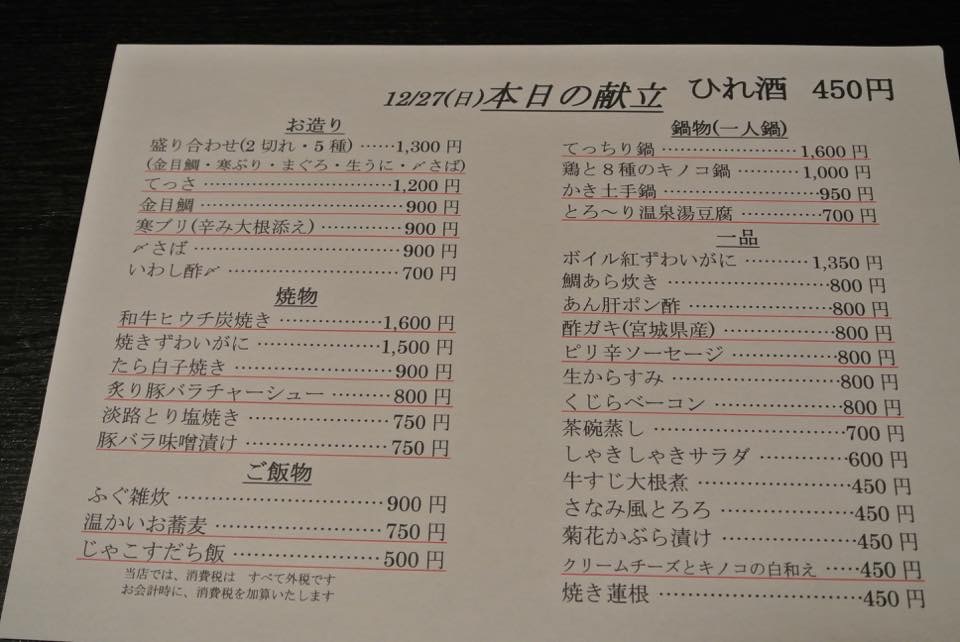 12/27(日)本日の献立 ひれ酒 450円
お造り
盛り合わせ(2切れ・5種)……1,300円
(金目鯛・寒ぶり・まぐろ・生うに・〆さば)
てっさ……………………………1,200円
金目鯛……………………………900円
寒ブリ(辛み大根添え)…………900円
〆さば……………………………900円
いわし酢〆………………………700円
焼物
和牛ヒウチ炭焼き………………1,600円
焼きずわいがに…………………1,500円
たら白子焼き……………………900円
炙り豚バラチャーシュー………800円
淡路とり塩焼き…………………750円
豚バラ味噌漬け…………………750円
ご飯物
ふぐ雑炊…………………………900円
温かいお蕎麦……………………750円
じゃこすだち飯…………………500円
当店では、消費税は すべて外税です
お会計時に、消費税を加算いたします
鍋物(一人鍋)
てっちり鍋………………………1,600円
鶏と8種のキノコ鍋……………1,000円
かき土手鍋………………………950円
とろ〜り温泉湯豆腐……………700円
一品
ボイル紅ずわいがに……………1,350円
鯛あら炊き………………………800円
あん肝ポン酢……………………800円
酢ガキ(宮城県産)………………800円
ピリ辛ソーセージ………………800円
生からすみ………………………800円
くじらベーコン…………………800円
茶碗蒸し…………………………700円
しゃきしゃきサラダ……………600円
牛すじ大根煮……………………450円
さなみ風とろろ…………………450円
菊花かぶら漬け…………………450円
クリームチーズとキノコの白和え……450円
焼き蓮根…………………………450円